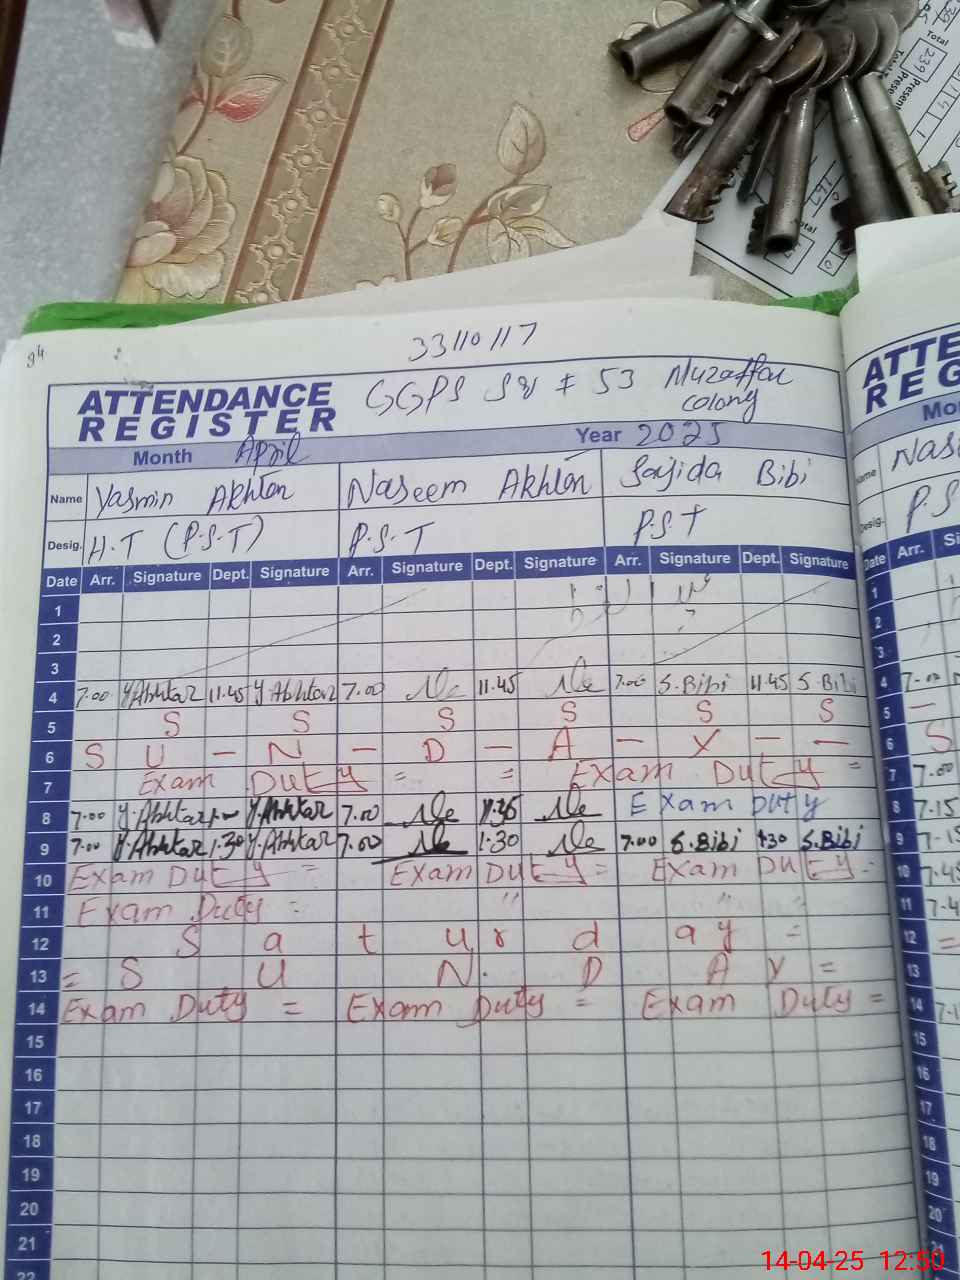 Total
239
Present
94
33110117
ATTENDANCE
REGISTER
GGPS SR # 53 Muzaffar
colony
Month April Year 2025
Name Yasmin Akhtar Naseem Akhtar Sajida Bibi
Desig. H.T (P.S.T) P.S.T P.S.T
Date Arr. Signature Dept. Signature Arr. Signature Dept. Signature Arr. Signature Dept. Signature
1
2
3
4 7.00 Y.Akhtar 11.45 Y.Akhtar 7.00 11.45 7.00 S.Bibi 11.45 S.Bibi
5 S S S S S S
6 S U - N - D - A - Y - -
7 Exam Duty = = Exam Duty =
8 7.00 Y.Akhtar Y.Akhtar 7.00 Exam Duty
9 7.00 Y.Akhtar 1.30 Y.Akhtar 7.00 1.30 7.00 S.Bibi 1.30 S.Bibi
10 Exam Duty = Exam Duty = Exam Duty =
11 Exam Duty = " " "
12 S a t u r d a y =
13 = S U N D A Y =
14 Exam Duty = Exam Duty = Exam Duty =
15
16
17
18
19
20
21
22
ATTE
REG
Mo
Name Nas
Desig. P.S
Date Arr. Si
1
2
3
4 7.00
5 -
6 S
7 7.00
8 7.15
9 7.15
10 7.45
11 7.4
12 =
13
14 7.1
15
16
17
18
19
20
21
14-04-25 12:50